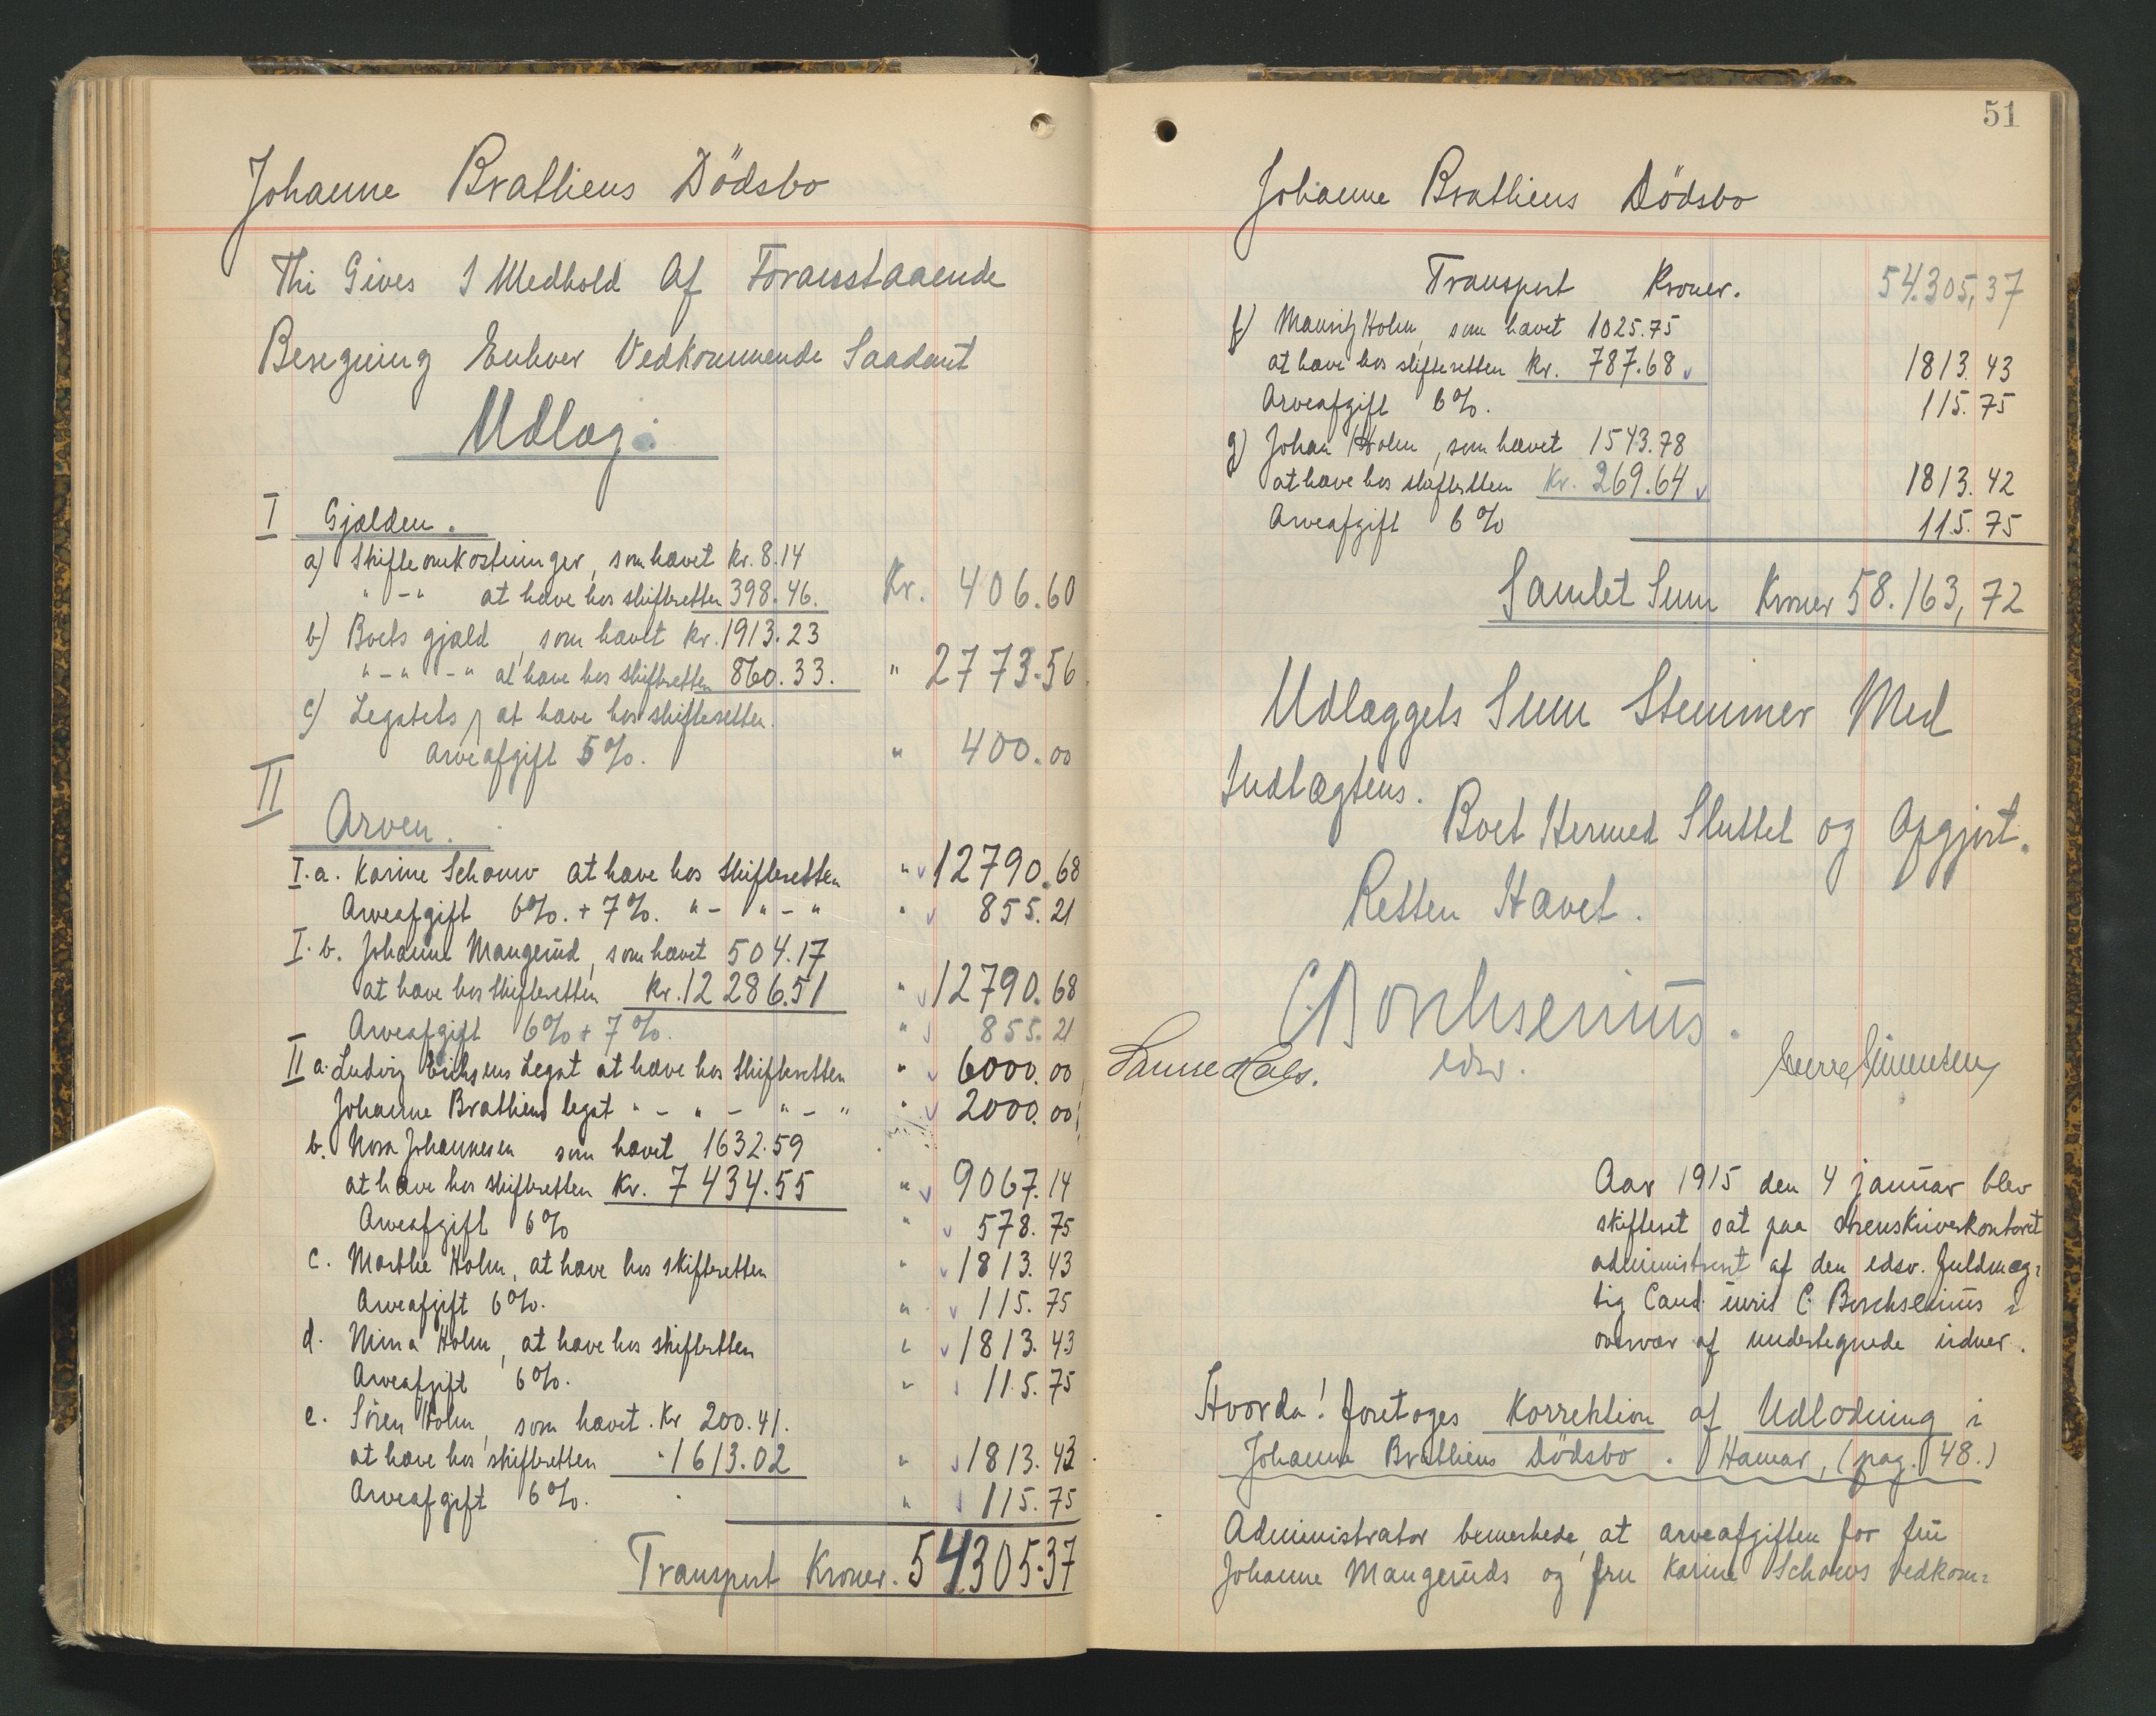 Johanne Brathens Dödsbo
Thi Gives I Medhold Af Foranstaaende
Beregning Enhver Vedkommende Saadant
Udlæg:
I Gjælden.
a) Skifteomkostninger, som hævet kr. 8.14
" - " at hæve hos skifteretten 398.46. Kr. 406.60
b) Boets gjæld, som hævet kr. 1913.23
" - " - " at hæve hos skifteretten 860.33. " 2773.56
c) Legatets, at hæve hos skifteretten.
arveafgift 5%. " 400.00
II
Arven.
I.a. Karine Schouw at hæve hos Skifteretten " 12790.68
Arveafgift 6%. + 7%. " - " - " " 855.21
I.b. Johanne Mangerud, som hævet 504.17
at hæve hos skifteretten kr. 12286.51 " 12790.68
Arveafgift 6% + 7%. " 855.21
II a. Ludvig Erichsens Legat at hæve hos Skifteretten " 6000.00
Johanne Brathens legat " - " - " - " " 2000.00
b. Nora Johannesen som hævet 1632.59
at hæve hos skifteretten kr. 7434.55 " 9067.14
Arveafgift 6% " 578.75
c. Marthe Holm, at hæve hos skifteretten " 1813.43
Arveafgift 6%. " 115.75
d. Nina Holm, at hæve hos skifteretten " 1813.43
Arveafgift 6%. " 115.75
e. Sören Holm, som hævet. Kr 200.41.
at hæve hos skifteretten " 1613.02 " 1813.43
Arveafgift 6%. " 115.75
Transport Kroner. 54305.37
51
Johanne Brathens Dödsbo
Transport Kroner. 54.305,37
f) Mauritz Holm, som hævet 1025.75
at hæve hos skifteretten kr. 787.68 1813.43
Arveafgift 6%. 115.75
g) Johan Holm, som hævet 1543.78
at hæve hos skifteretten Kr. 269.64 1813.42
Arveafgift 6% 115.75
Samlet Sum Kroner 58.163,72
Udlæggets Sum Stemmer Med
Indtægtens.
Boet Hermed Sluttet og Opgjort.
Retten Hævet.
C. Borchsenius.
edsv.
Aar 1915 den 4 januar blev
skifteret sat paa sorenskriverkontoret
administreret af den edsv. fuldmæg=
tig Cand. juris C. Borchsenius i
overvær af undertegnede vidner.
Hvorda! foretoges Korrektion af Udlodning i
Johanne Brathens Dödsbo. Hamar, (pag. 48.)
Administrator bemerkede, at arveafgiften for fru
Johanne Mangeruds og fru Karine Schouws vedkom=